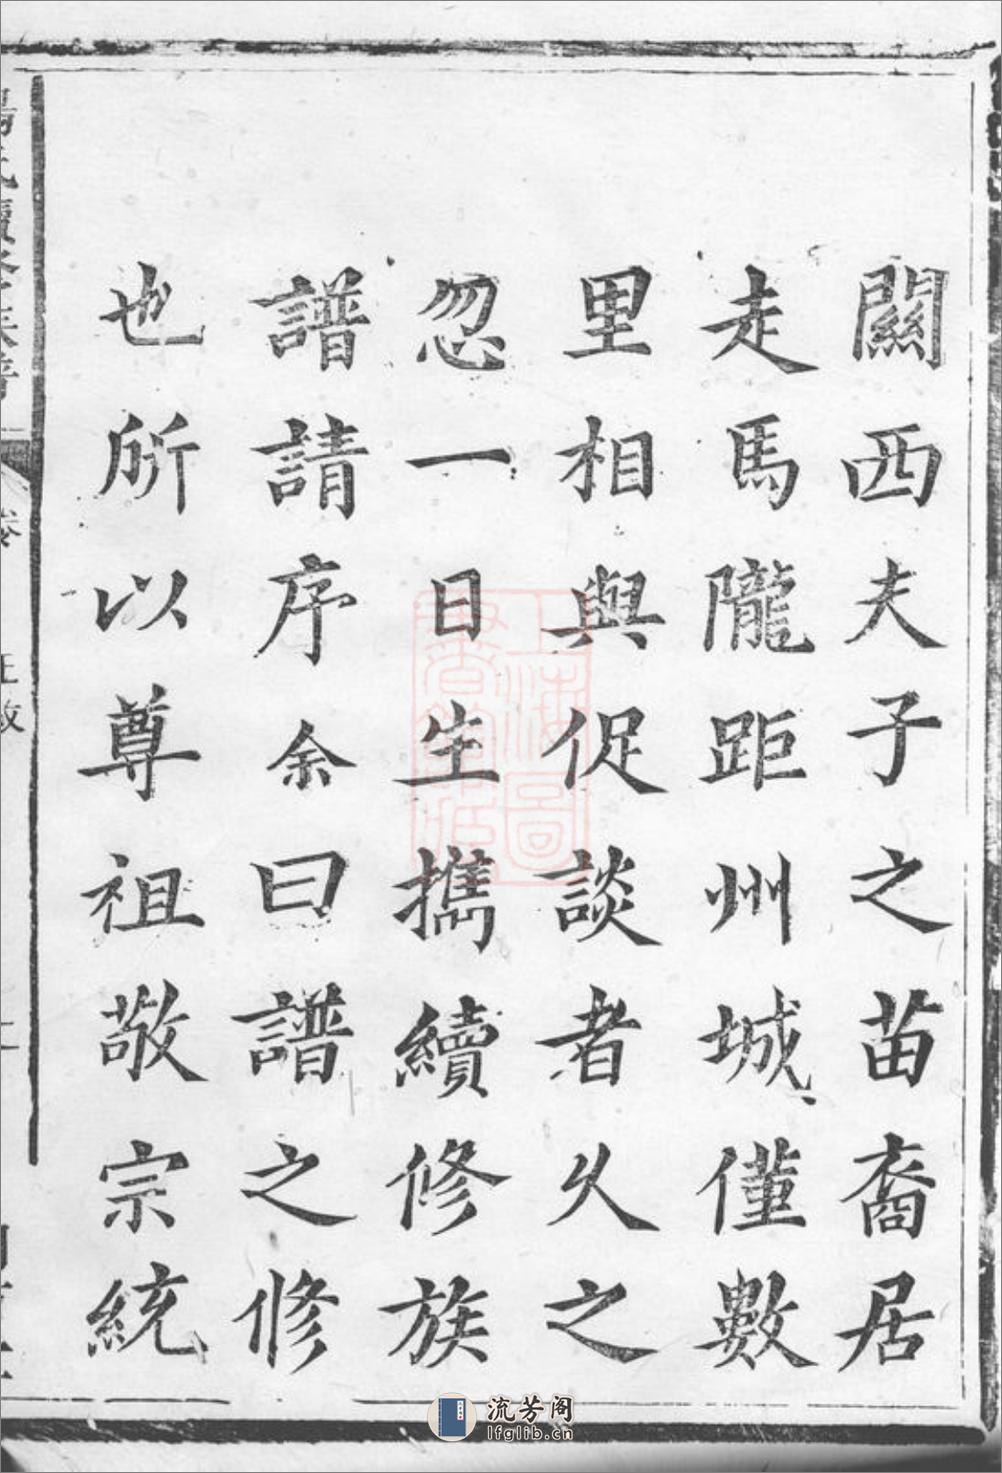 關西夫子之苗裔居
走馬隴距州城僅數
里相與促談者久之
忽一日生携續修族
譜請序余曰譜之修
也所以尊祖敬宗統
上海圖書館藏
流芳阁
lfglib.cn